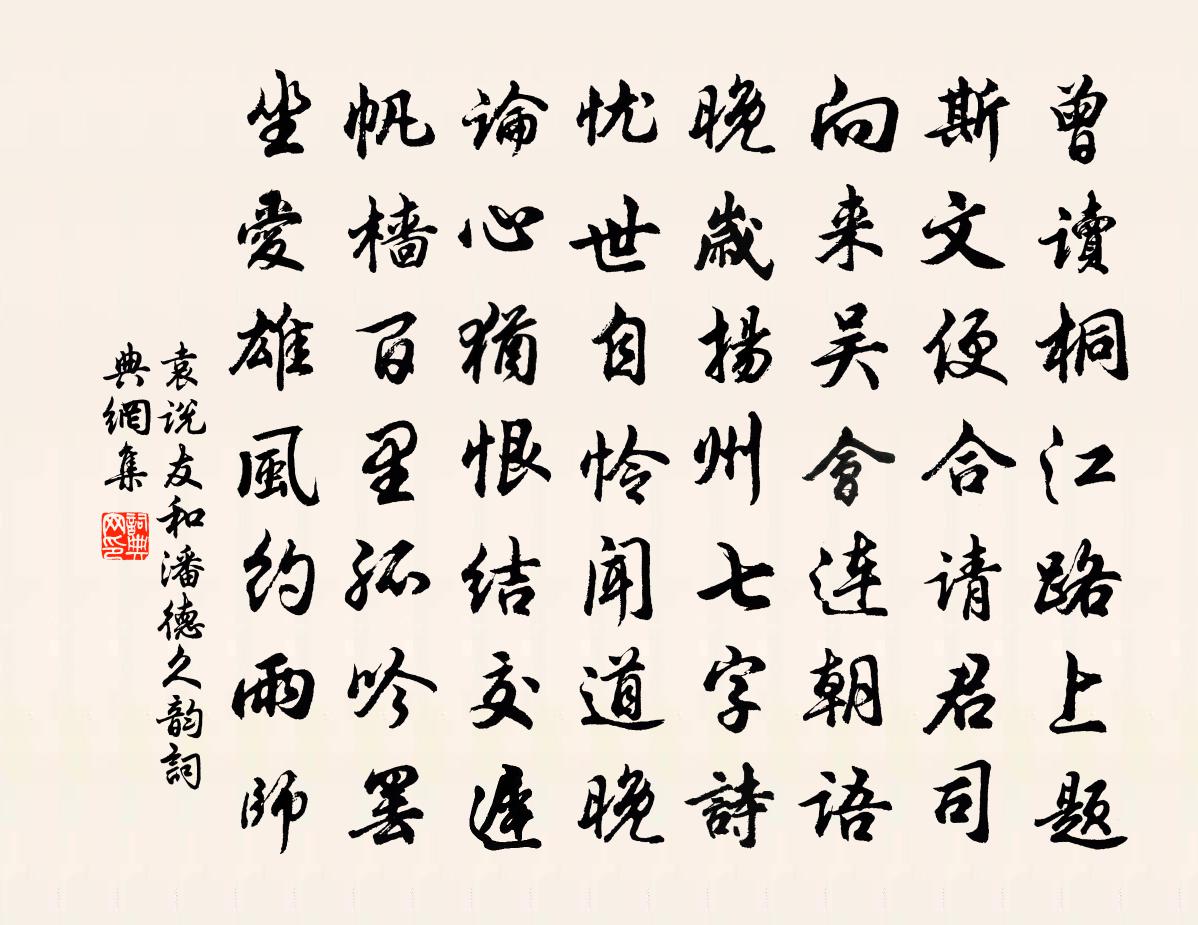 曾讀桐江路上題
斯文便合请君司
向来吴會連朝語
晚歲揚州七字詩
忧世自怜闻道晚
論心猶恨结交遲
帆檣百里孤吟罢
坐愛雄風約雨師
袁说友和潘德久韵詞
典網集
詞典
网印